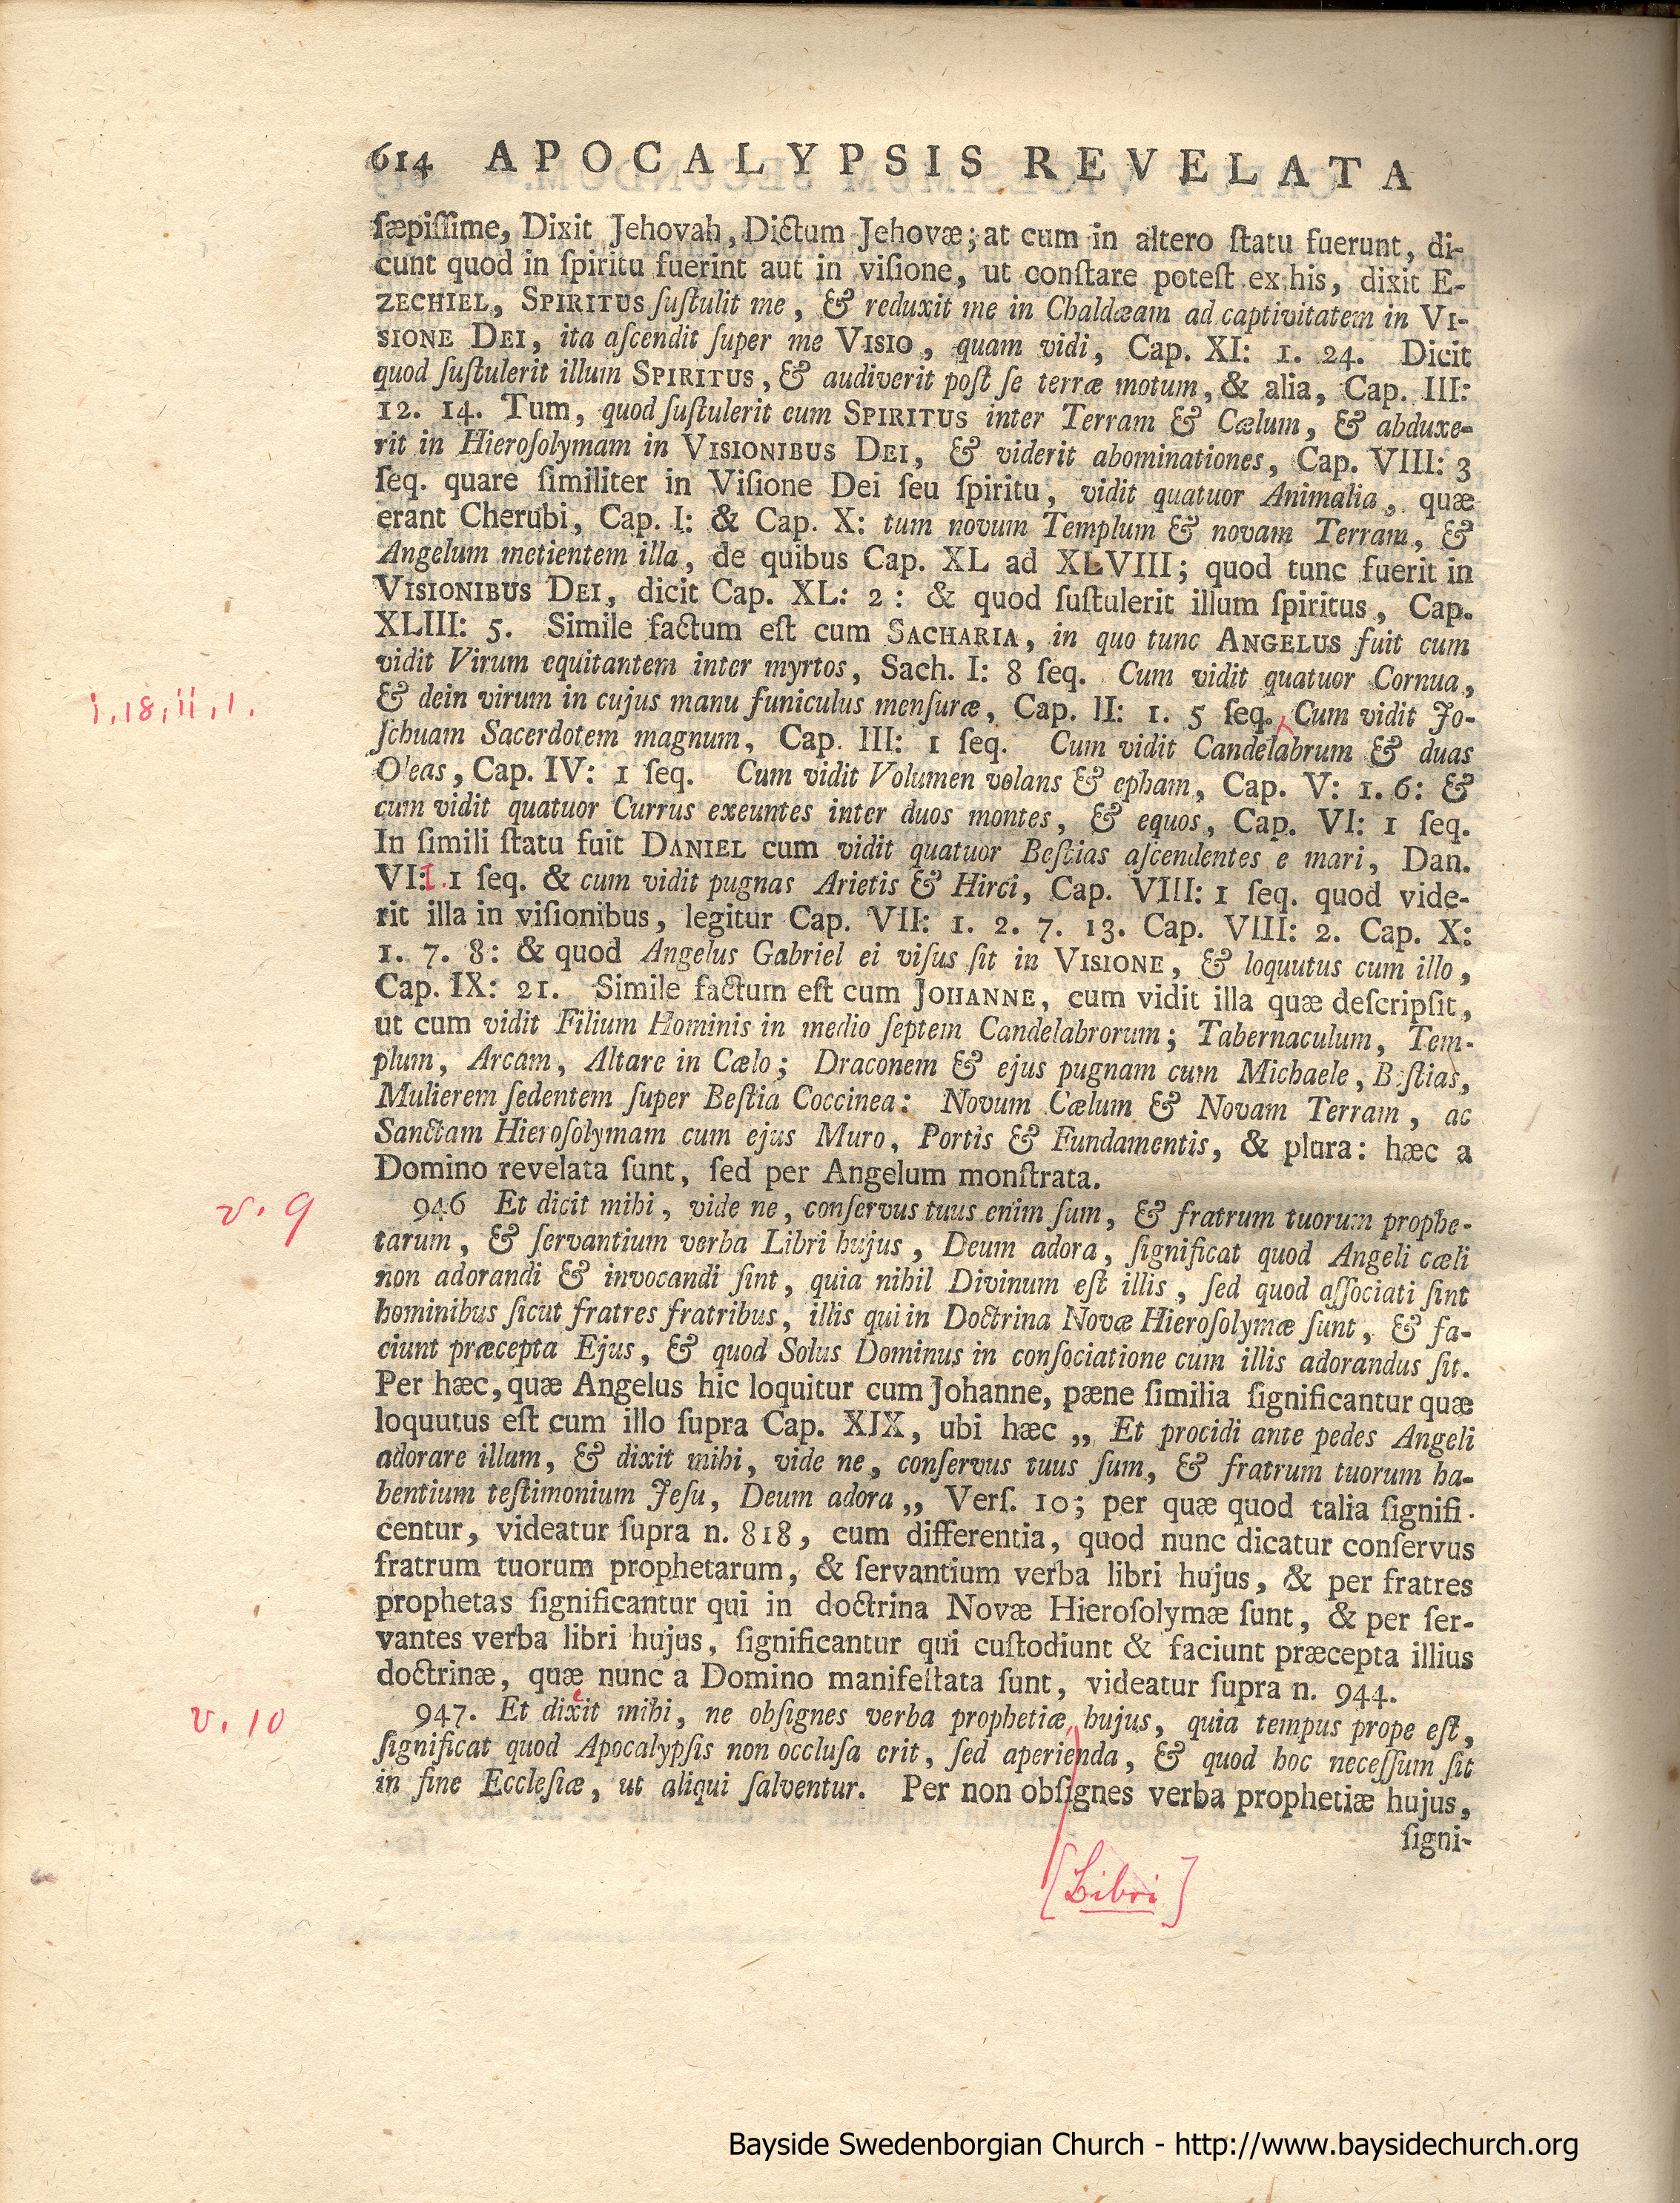 614 APOCALYPSIS REVELATA
ſæpiſſime, Dixit Jehovah, Dictum Jehovæ; at cum in altero ſtatu fuerunt, di-
cunt quod in ſpiritu fuerint aut in viſione, ut conſtare poteſt ex his, dixit E-
ZECHIEL, SPIRITUS ſuſtulit me, & reduxit me in Chaldæam ad captivitatem in VI-
SIONE DEI, ita aſcendit ſuper me VISIO, quam vidi, Cap. XI: 1. 24. Dicit
quod ſuſtulerit illum SPIRITUS, & audiverit poſt ſe terræ motum, & alia, Cap. III:
12. 14. Tum, quod ſuſtulerit eum SPIRITUS inter Terram & Cælum, & abduxe-
rit in Hieroſolymam in VISIONIBUS DEI, & viderit abominationes, Cap. VIII: 3
ſeq. quare ſimiliter in Viſione Dei ſeu ſpiritu, vidit quatuor Animalia, quæ
erant Cherubi, Cap. I: & Cap. X: tum novum Templum & novam Terram, &
Angelum metientem illa, de quibus Cap. XL ad XLVIII; quod tunc fuerit in
VISIONIBUS DEI, dicit Cap. XL: 2: & quod ſuſtulerit illum ſpiritus, Cap.
XLIII: 5. Simile factum eſt cum SACHARIA, in quo tunc ANGELUS fuit cum
vidit Virum equitantem inter myrtos, Sach. I: 8 ſeq. Cum vidit quatuor Cornua,
i, 18, ii, 1.
& dein virum in cujus manu funiculus menſuræ, Cap. II: 1. 5 ſeq. Cum vidit Jo-
ſchuam Sacerdotem magnum, Cap. III: 1 ſeq. Cum vidit Candelabrum & duas
O'eas, Cap. IV: 1 ſeq. Cum vidit Volumen volans & epham, Cap. V: 1. 6: &
cum vidit quatuor Currus exeuntes inter duos montes, & equos, Cap. VI: 1 ſeq.
In ſimili ſtatu fuit DANIEL cum vidit quatuor Beſtias aſcendentes e mari, Dan.
VI:I. 1 ſeq. & cum vidit pugnas Arietis & Hirci, Cap. VIII: 1 ſeq. quod vide-
rit illa in viſionibus, legitur Cap. VII: 1. 2. 7. 13. Cap. VIII: 2. Cap. X:
1. 7. 8: & quod Angelus Gabriel ei viſus ſit in VISIONE, & loquutus cum illo,
Cap. IX: 21. Simile factum eſt cum JOHANNE, cum vidit illa quæ deſcripſit,
ut cum vidit Filium Hominis in medio ſeptem Candelabrorum; Tabernaculum, Tem-
plum, Arcam, Altare in Cælo; Draconem & ejus pugnam cum Michaele, Beſtias,
Mulierem ſedentem ſuper Beſtia Coccinea: Novum Cælum & Novam Terram, ac
Sanctam Hieroſolymam cum ejus Muro, Portis & Fundamentis, & plura: hæc a
Domino revelata ſunt, ſed per Angelum monſtrata.
v. 9
946 Et dicit mihi, vide ne, conſervus tuus enim ſum, & fratrum tuorum prophe-
tarum, & ſervantium verba Libri hujus, Deum adora, ſignificat quod Angeli cæli
non adorandi & invocandi ſint, quia nihil Divinum eſt illis, ſed quod aſſociati ſint
hominibus ſicut fratres fratribus, illis qui in Doctrina Novæ Hieroſolymæ ſunt, & fa-
ciunt præcepta Ejus, & quod Solus Dominus in conſociatione cum illis adorandus ſit.
Per hæc, quæ Angelus hic loquitur cum Johanne, pæne ſimilia ſignificantur quæ
loquutus eſt cum illo ſupra Cap. XIX, ubi hæc „ Et procidi ante pedes Angeli
adorare illum, & dixit mihi, vide ne, conſervus tuus ſum, & fratrum tuorum ha-
bentium teſtimonium Jeſu, Deum adora „ Verſ. 10; per quæ quod talia ſignifi-
centur, videatur ſupra n. 818, cum differentia, quod nunc dicatur conſervus
fratrum tuorum prophetarum, & ſervantium verba libri hujus, & per fratres
prophetas ſignificantur qui in doctrina Novæ Hieroſolymæ ſunt, & per ſer-
vantes verba libri hujus, ſignificantur qui cuſtodiunt & faciunt præcepta illius
doctrinæ, quæ nunc a Domino manifeſtata ſunt, videatur ſupra n. 944.
v. 10
947. Et dixit mihi, ne obſignes verba prophetiæ hujus, quia tempus prope eſt,
ſignificat quod Apocalypſis non occluſa erit, ſed aperienda, & quod hoc neceſſum ſit
in fine Eccleſiæ, ut aliqui ſalventur. Per non obſignes verba prophetiæ hujus,
ſigni-
[Libri]
Bayside Swedenborgian Church - http://www.baysidechurch.org